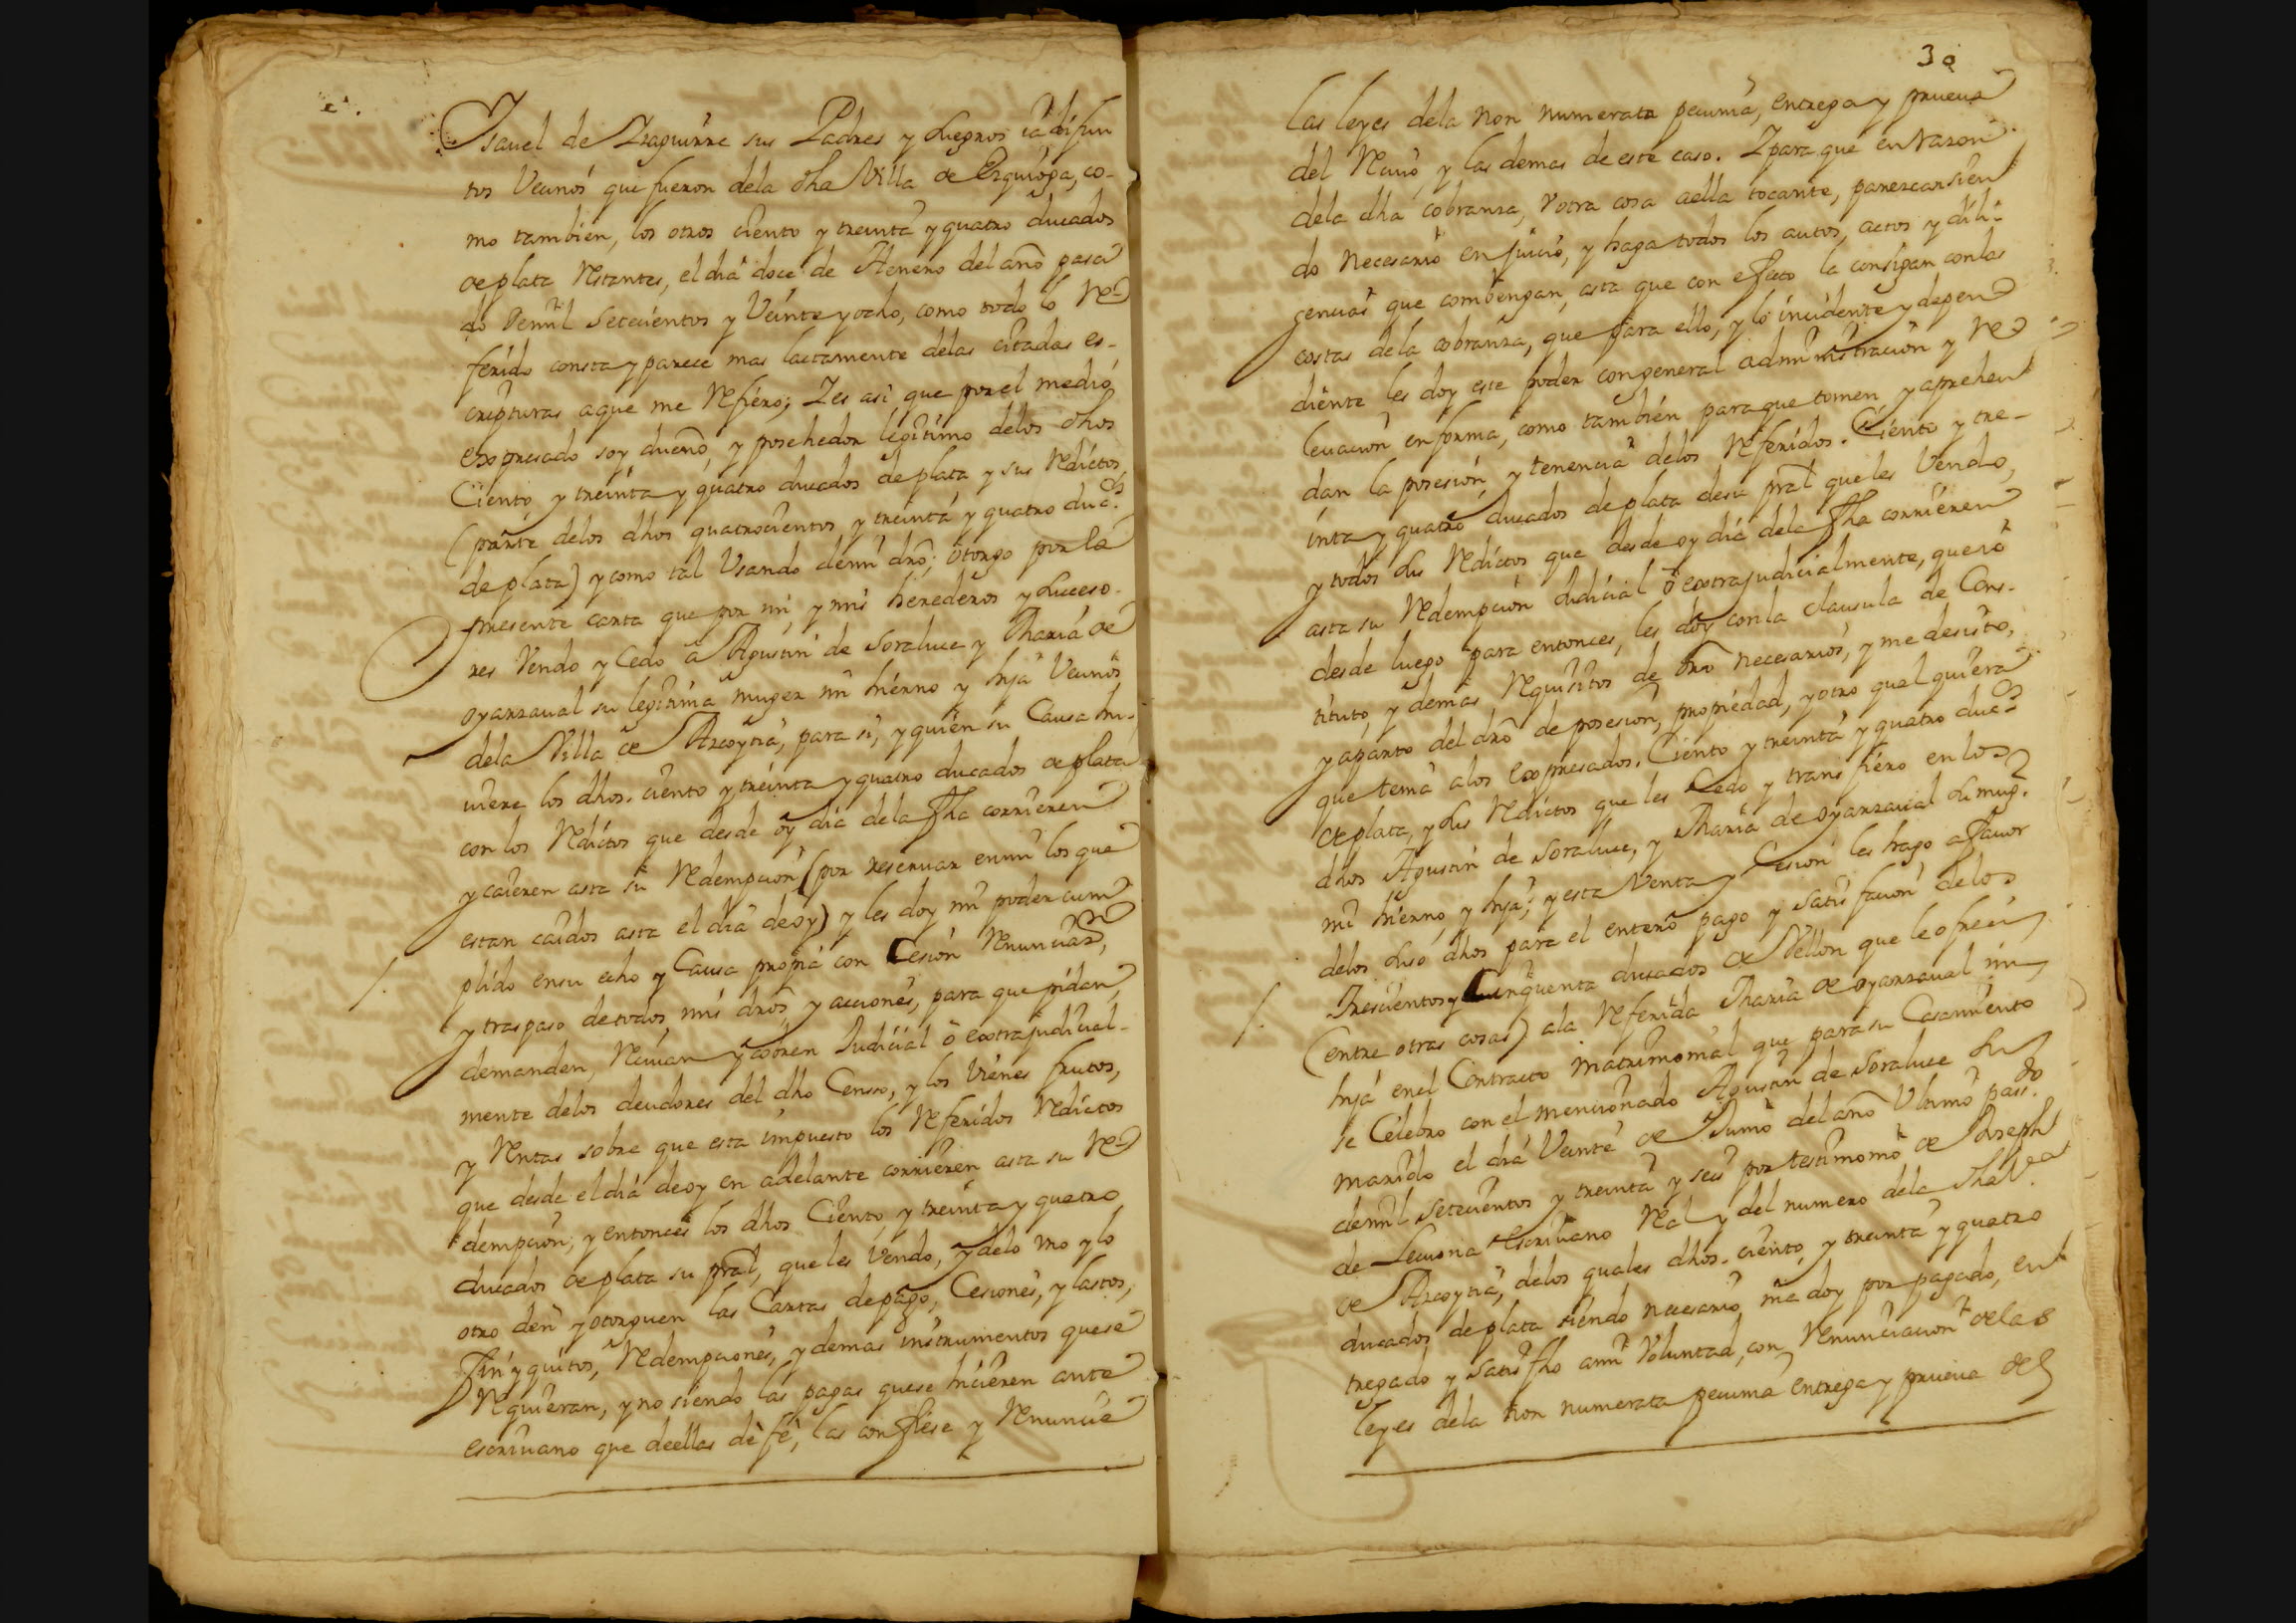 Isauel de Yraguirre sus Padres y suegros ia difun
tos Vecinos que fueron dela dha Villa de Ezquioga, co-
mo tambien, los otros ciento y treinta y quatro ducados
de plata restantes, el dia doce de Henero del año pasa
do demil setecientos y Veinte y ocho, como todo lo Re-
ferido consta y parece mas lactamente delas citadas es-
cripturas aque me Refiero; Y es asi que por el medio
expresado soy dueño, y posehedor legitimo delos dhos
Ciento y treinta y quatro ducados de plata y sus Redictos,
(parte delos dhos quatrocientos y treinta y quatro ducos.
de plata) y como tal Vsando demi dro; otorgo por la
presente carta que por mi, y mis herederos y suceso-
res Vendo y Cedo â Agustin de Soraluce y Maria de
oyarzaual su legitima muger mi hierno y hija Vecinos
dela Villa de Azcoytia, para si, y quien su Causa hu-
uiere los dhos. ciento y treinta y quatro ducados de plata
con los Redictos que desde oy dia dela fha corrieren
y caieren asta su Redempcion (por reseruar enmi los que
estan caidos asta el dia de oy) y les doy mi poder cum
plido ensu echo y Causa propia con Cesion Renunciaon,
y traspaso detodos mis dros y acciones, para que pidan,
demanden, Reciuan y cobren Judicial ô extrajudicial-
mente delos deudores del dho Censo, y los vienes frutos,
y Rentas sobre que esta impuesto los Referidos Redictos
que desde el dia de oy en adelante corrieren asta su Re-
dempcion; y entonces los dhos Ciento y treinta y quatro
ducados de plata su pral, que les Vendo, y delo vno y lo
otro den y otorguen las Cartas depago, Cesiones, y lastos,
finiquitos, Redempciones, y demas instrumentos quese
Requieran, y no siendo las pagas quese hicieren ante
escriuano que deellas dê fê, las confiese y Renuncie
30
las leyes dela non numerata pecunia, entrega y prueua
del Reciuo, y las demas de este caso. Y para que en razon
dela dha cobranza, v otra cosa aella tocante, parezcan sien
do necesario en juicio, y haga todos los autos, actos y dili-
gencias que combengan, asta que con efecto la consigan conlas
costas dela cobranza, que para ello, y lo incidente y depen
diente les doy este poder congeneral administracion y Re-
leuacion enforma, como tambien paraque tomen y aprehen
dan la posesion, y tenencia delos Referidos. Ciento y tre-
inta y quatro ducados de plata desu pral que les Vendo,
y todos sus Redictos que desde oy dia dela fha corrieren
asta su Redempcion Judicial ô extrajudicialmente, que iô
desde luego para entonces, les doy conla clausula de Cons-
tituto, y demas Requisitos de dro necesarios, y me desisto,
y aparto del dro de posesion, propiedad, y otro qual quiera
que tenia alos expresados. Ciento y treinta y quatro ducos
de plata, y sus Redictos que les Cedo y transfiero en los
dhos Agustin de Soraluce, y Maria de oyarzaual su mugr.
mi hierno, y hija; y esta Venta y Cesion les hago afauor
delos suso dhos para el entero pago y satisfacion delos
Trescientos y Cinquenta ducados de Vellon que le ofreci
(entre otras cosas) ala Referida Maria de oyarzaual mi
hija enel Contracto matrimonial que para su Casamiento
se Celebro con el mencionado Agustin de Soraluce su
marido el dia Veinte de Junio del año Vltimo pasdo.
demil setecientos y treinta y seis por testimonio de Joseph
de Lecuona escriuano Real y del numero dela dha Va.
de Azcoytia, delos quales dhos. ciento y treinta y quatro
ducados de plata siendo necesario me doy por pagado, en
tregado y satisfho ami Voluntad, con Renunciacion delas
leyes dela non numerata pecunia entrega y prueua del